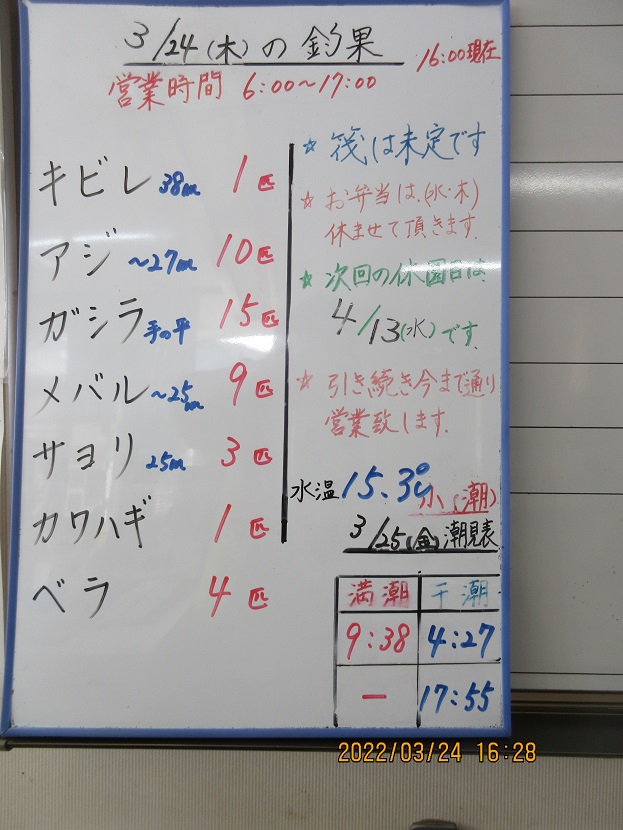 3/24(木)の釣果
16:00現在
営業時間 6:00~17:00
キビレ 38cm 1匹
アジ ~27cm 10匹
ガシラ 手の平 15匹
メバル ~25cm 9匹
サヨリ 25cm 3匹
カワハギ 1匹
ベラ 4匹
☆ 筏は未定です
☆ お弁当は、(水・木)
休ませて頂きます。
☆ 次回の休園日は、
4/13(水)です。
☆ 引き続き今まで通り
営業致します。
水温 15.3℃
小(潮)
3/25(金)潮見表
満潮 干潮
9:38 4:27
ー 17:55
2022/03/24 16:28